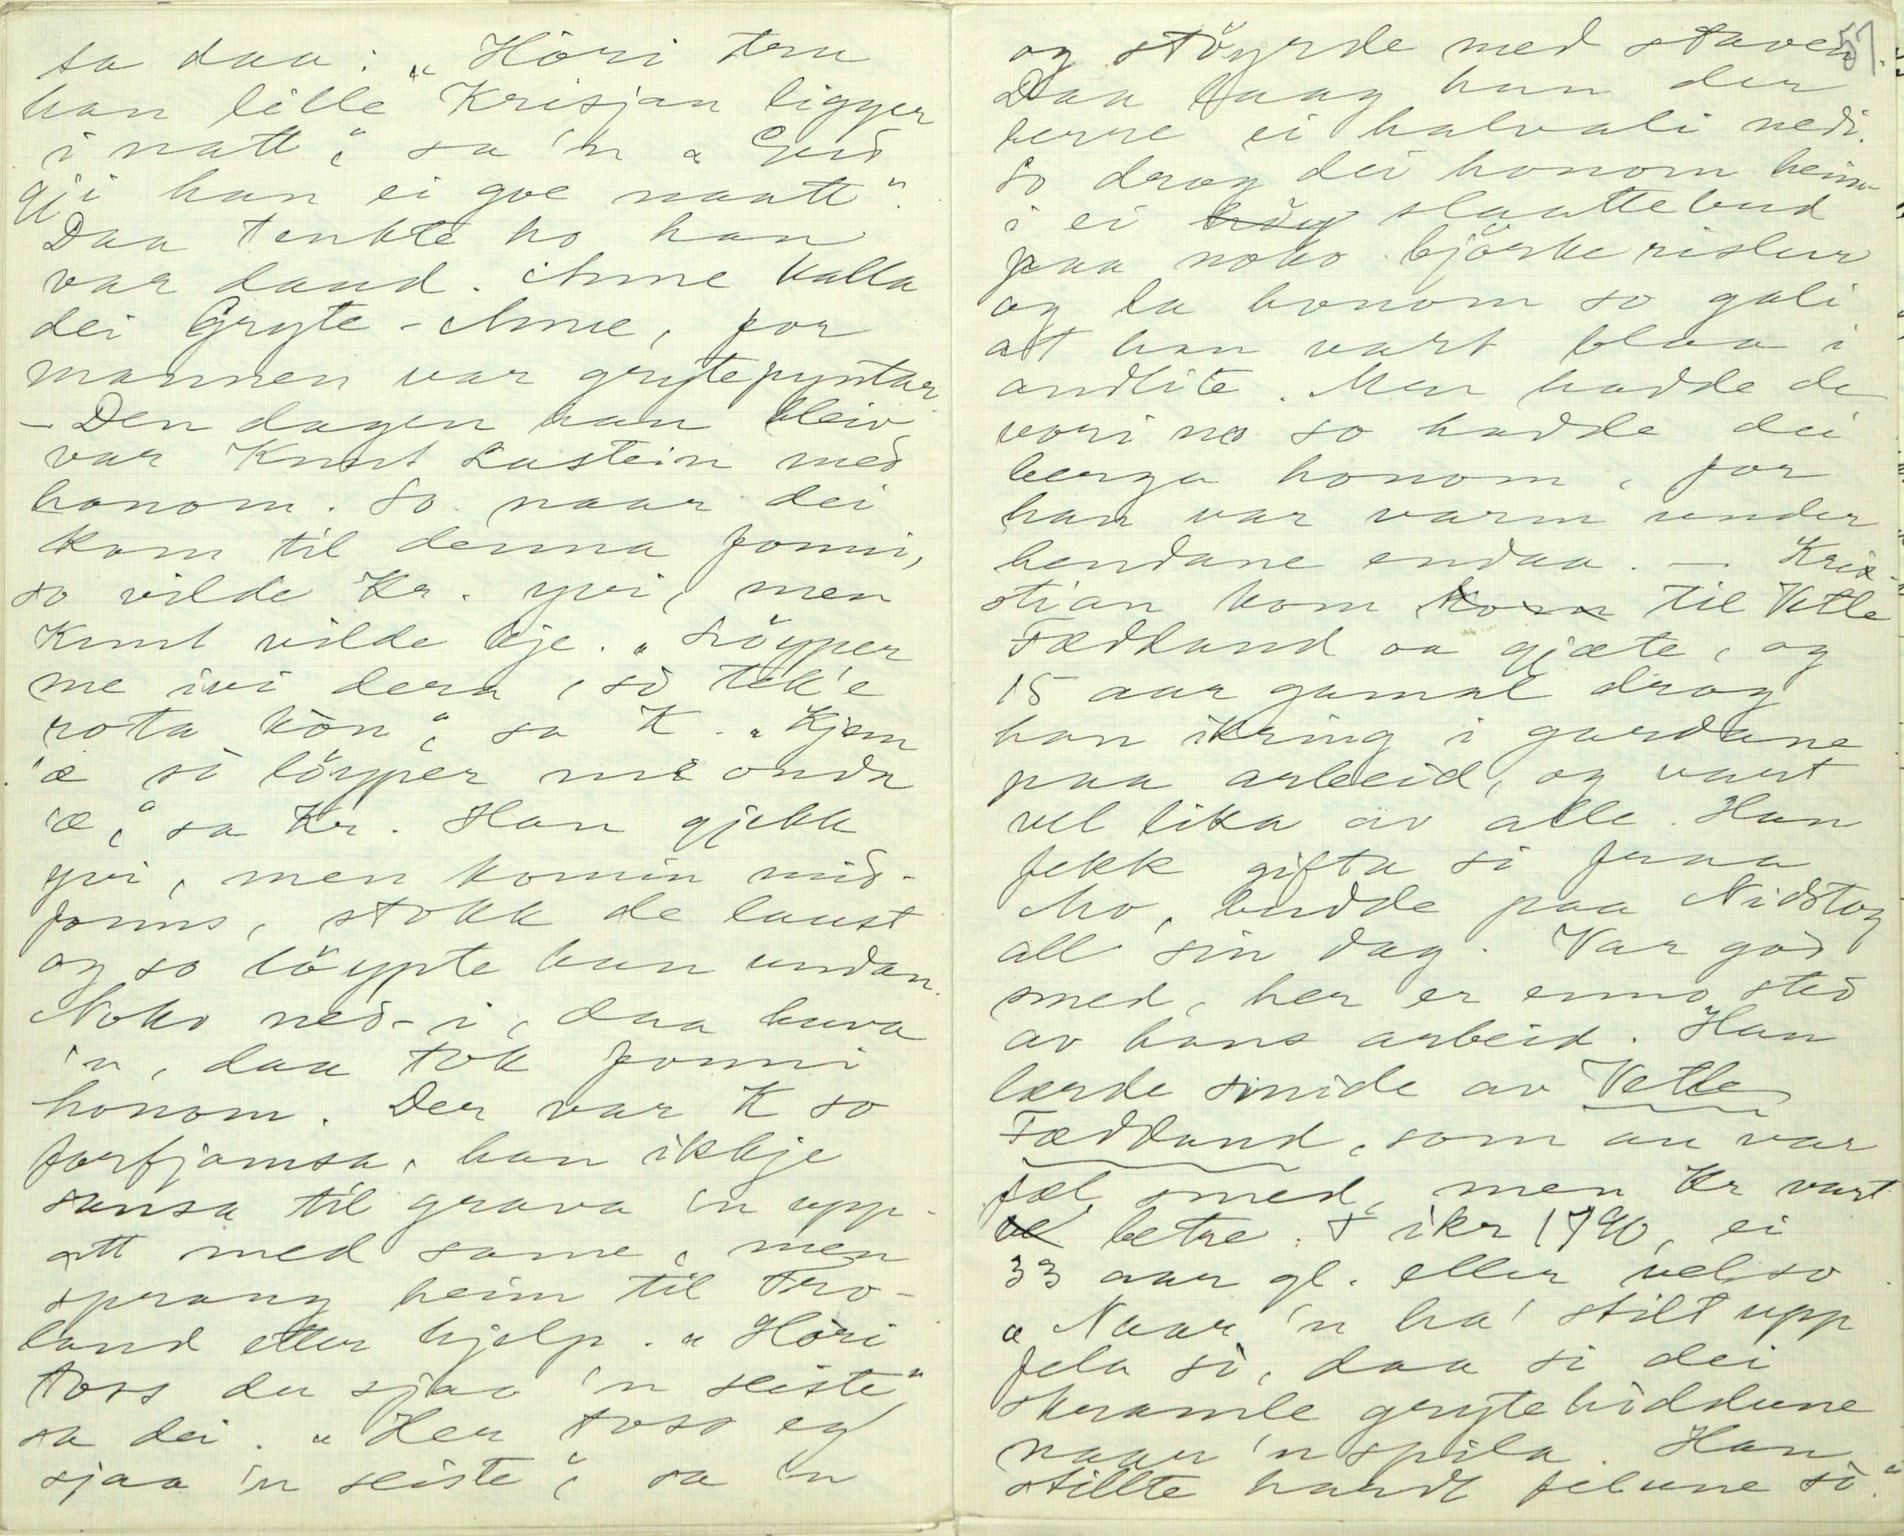 sa daa: „Höri tru
han lille Krisjan ligger
i natt", sa 'n „Gud
gji han ei goe naatt".
Daa tenkte ho han
var daud. Anne kalla
dei Gryte-Anne, for
mannen var grytepyntar
– Den dagen han bleiv
var Knut Lastein med
honom. So naar dei
kom til denna fonni,
so vilde Kr. yvi, men
Knut vilde kje. „Löyper
me ivi dera, so tek'e
rota kòn", sa K. „Kjem
'æ so löyper me onda
'æ", sa Kr. Han gjekk
yvi, men komin mid-
fonns, stokk de laust
og so löypte han undan.
Noko ned-i, daa kuva
'n, daa tok fonni
honom. Der var K so
forfjamsa, han ikkje
sansa til grava 'n upp-
att med same, men
sprang heim til Tro-
land etter hjelp. „Höri
toss du sjaa 'n seiste"
sa dei. „Her toss eg
sjaa 'n seiste", sa 'n
57.
og stöyrde med staven
Daa laag han der
berre ei halvali nedi.
So drog dei honom heim
i ei höy slaattebud
paa noko björkerislur
og la honom so gali
at han vart blaa i
andlite. Men hadde de
vori no so hadde dei
berga honom, for
han var varm under
hendane endaa. – Kris-
tian kom kom til Vetle
Fædland oa gjæte, og
15 aar gamal drog
han ikring i gardane
paa arbeid, og vart
vel lika av alle. Han
fekk gifta si fraa
Mo, budde paa Nidstog
all sin dag. Var god
smed, her er enno sted
av hans arbeid. Han
lærde smide av Vetle
Fædland, som au var
fæl smed, men Kr vart
betre. † ikr 1790, ei
33 aar gl. eller vel so.
„Naar 'n ha' stilt upp
fela si, daa si dei
skramle grytehiddune
naar 'n spila. Han
stillte hardt felune so".